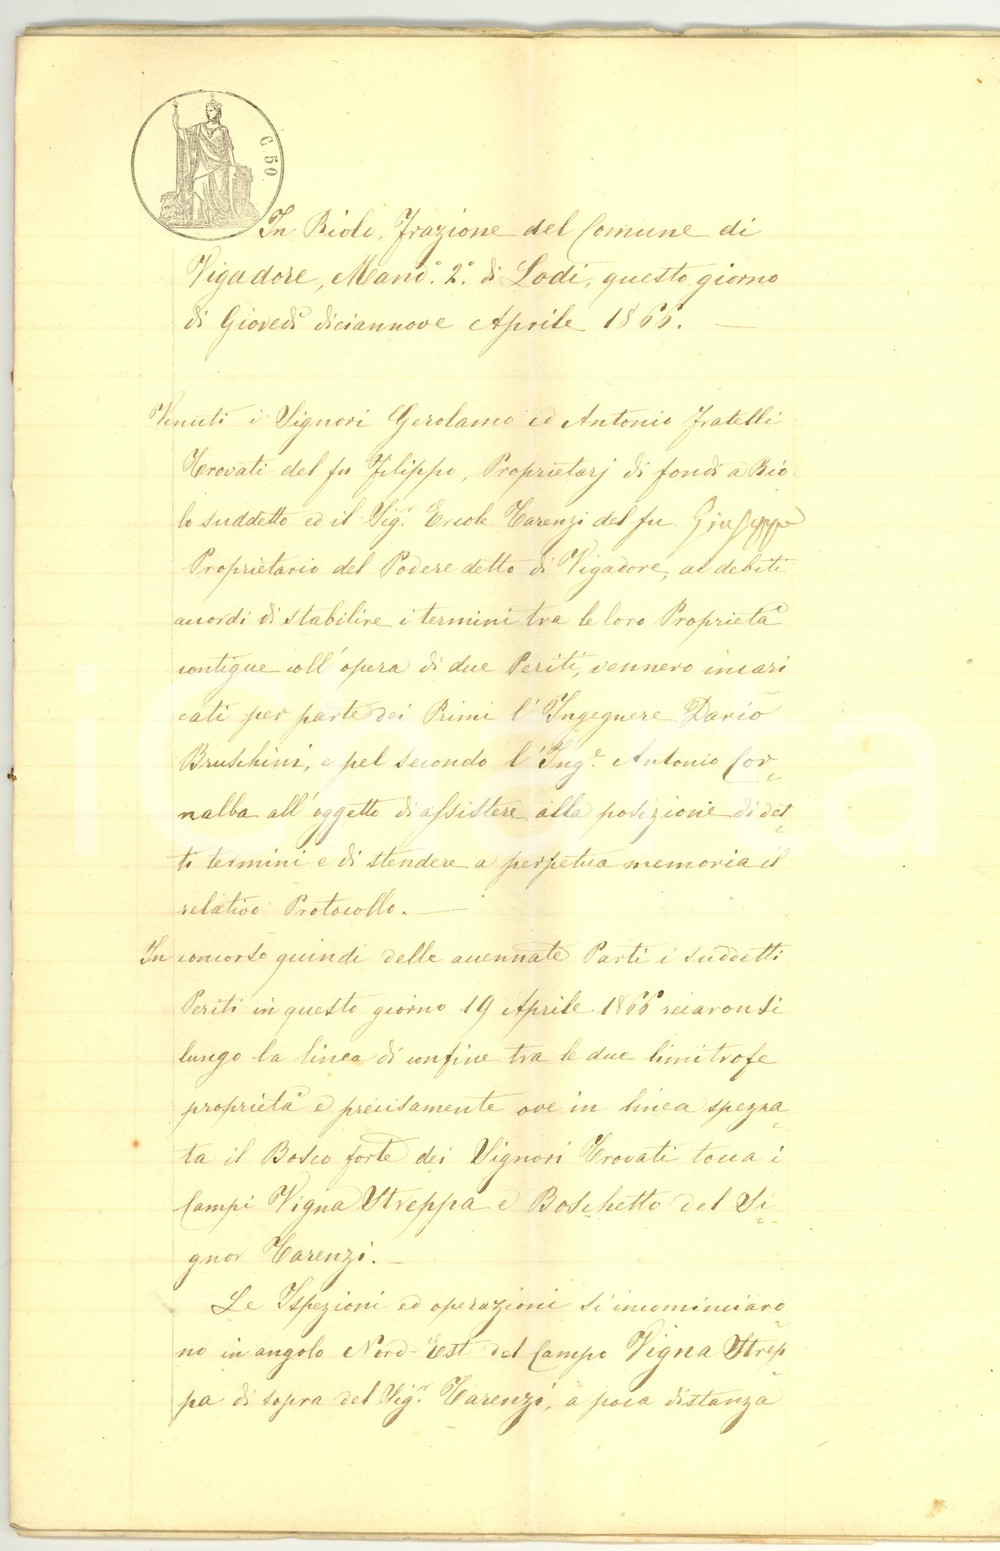 C 50
In Biolo, Frazione del Comune di
Vigadore, Mand.º 2.º di Lodi, questo giorno
di Giovedì diciannove Aprile 1866. —
Venuti i Signori Gerolamo ed Antonio fratelli
Trovati del fu Filippo, Proprietarj di fondi a Bio
lo suddetto ed il Sigr. Ercole Carenzi del fu Giuseppe
Proprietario del Podere detto di Vigadore, ai debiti
accordi di stabilire i termini tra le loro Proprietà
contigue coll'opera di due Periti, vennero incari
cati per parte dei Primi l'Ingegnere Dario
Bruschini, e pel secondo l'Inge. Antonio Cor-
nalba all'oggetto di assistere alla posizione di det-
ti termini e di stendere a perpetua memoria il
relativo Protocollo. —
In concorso quindi delle accennate Parti i suddetti
Periti in questo giorno 19 Aprile 1866 reccaronsi
lungo la linea di confine tra le due limitrofe
proprietà e precisamente ove in linea spezza-
ta il Bosco forte dei Signori Trovati tocca i
Campi Vigna Streppa e Boschetto del Si-
gnor Carenzi. —
Le Ispezioni ed operazioni si incominciaro-
no in angolo Nord-Est del Campo Vigna Strep-
pa di sopra del Sigr. Carenzi, a poca distanza